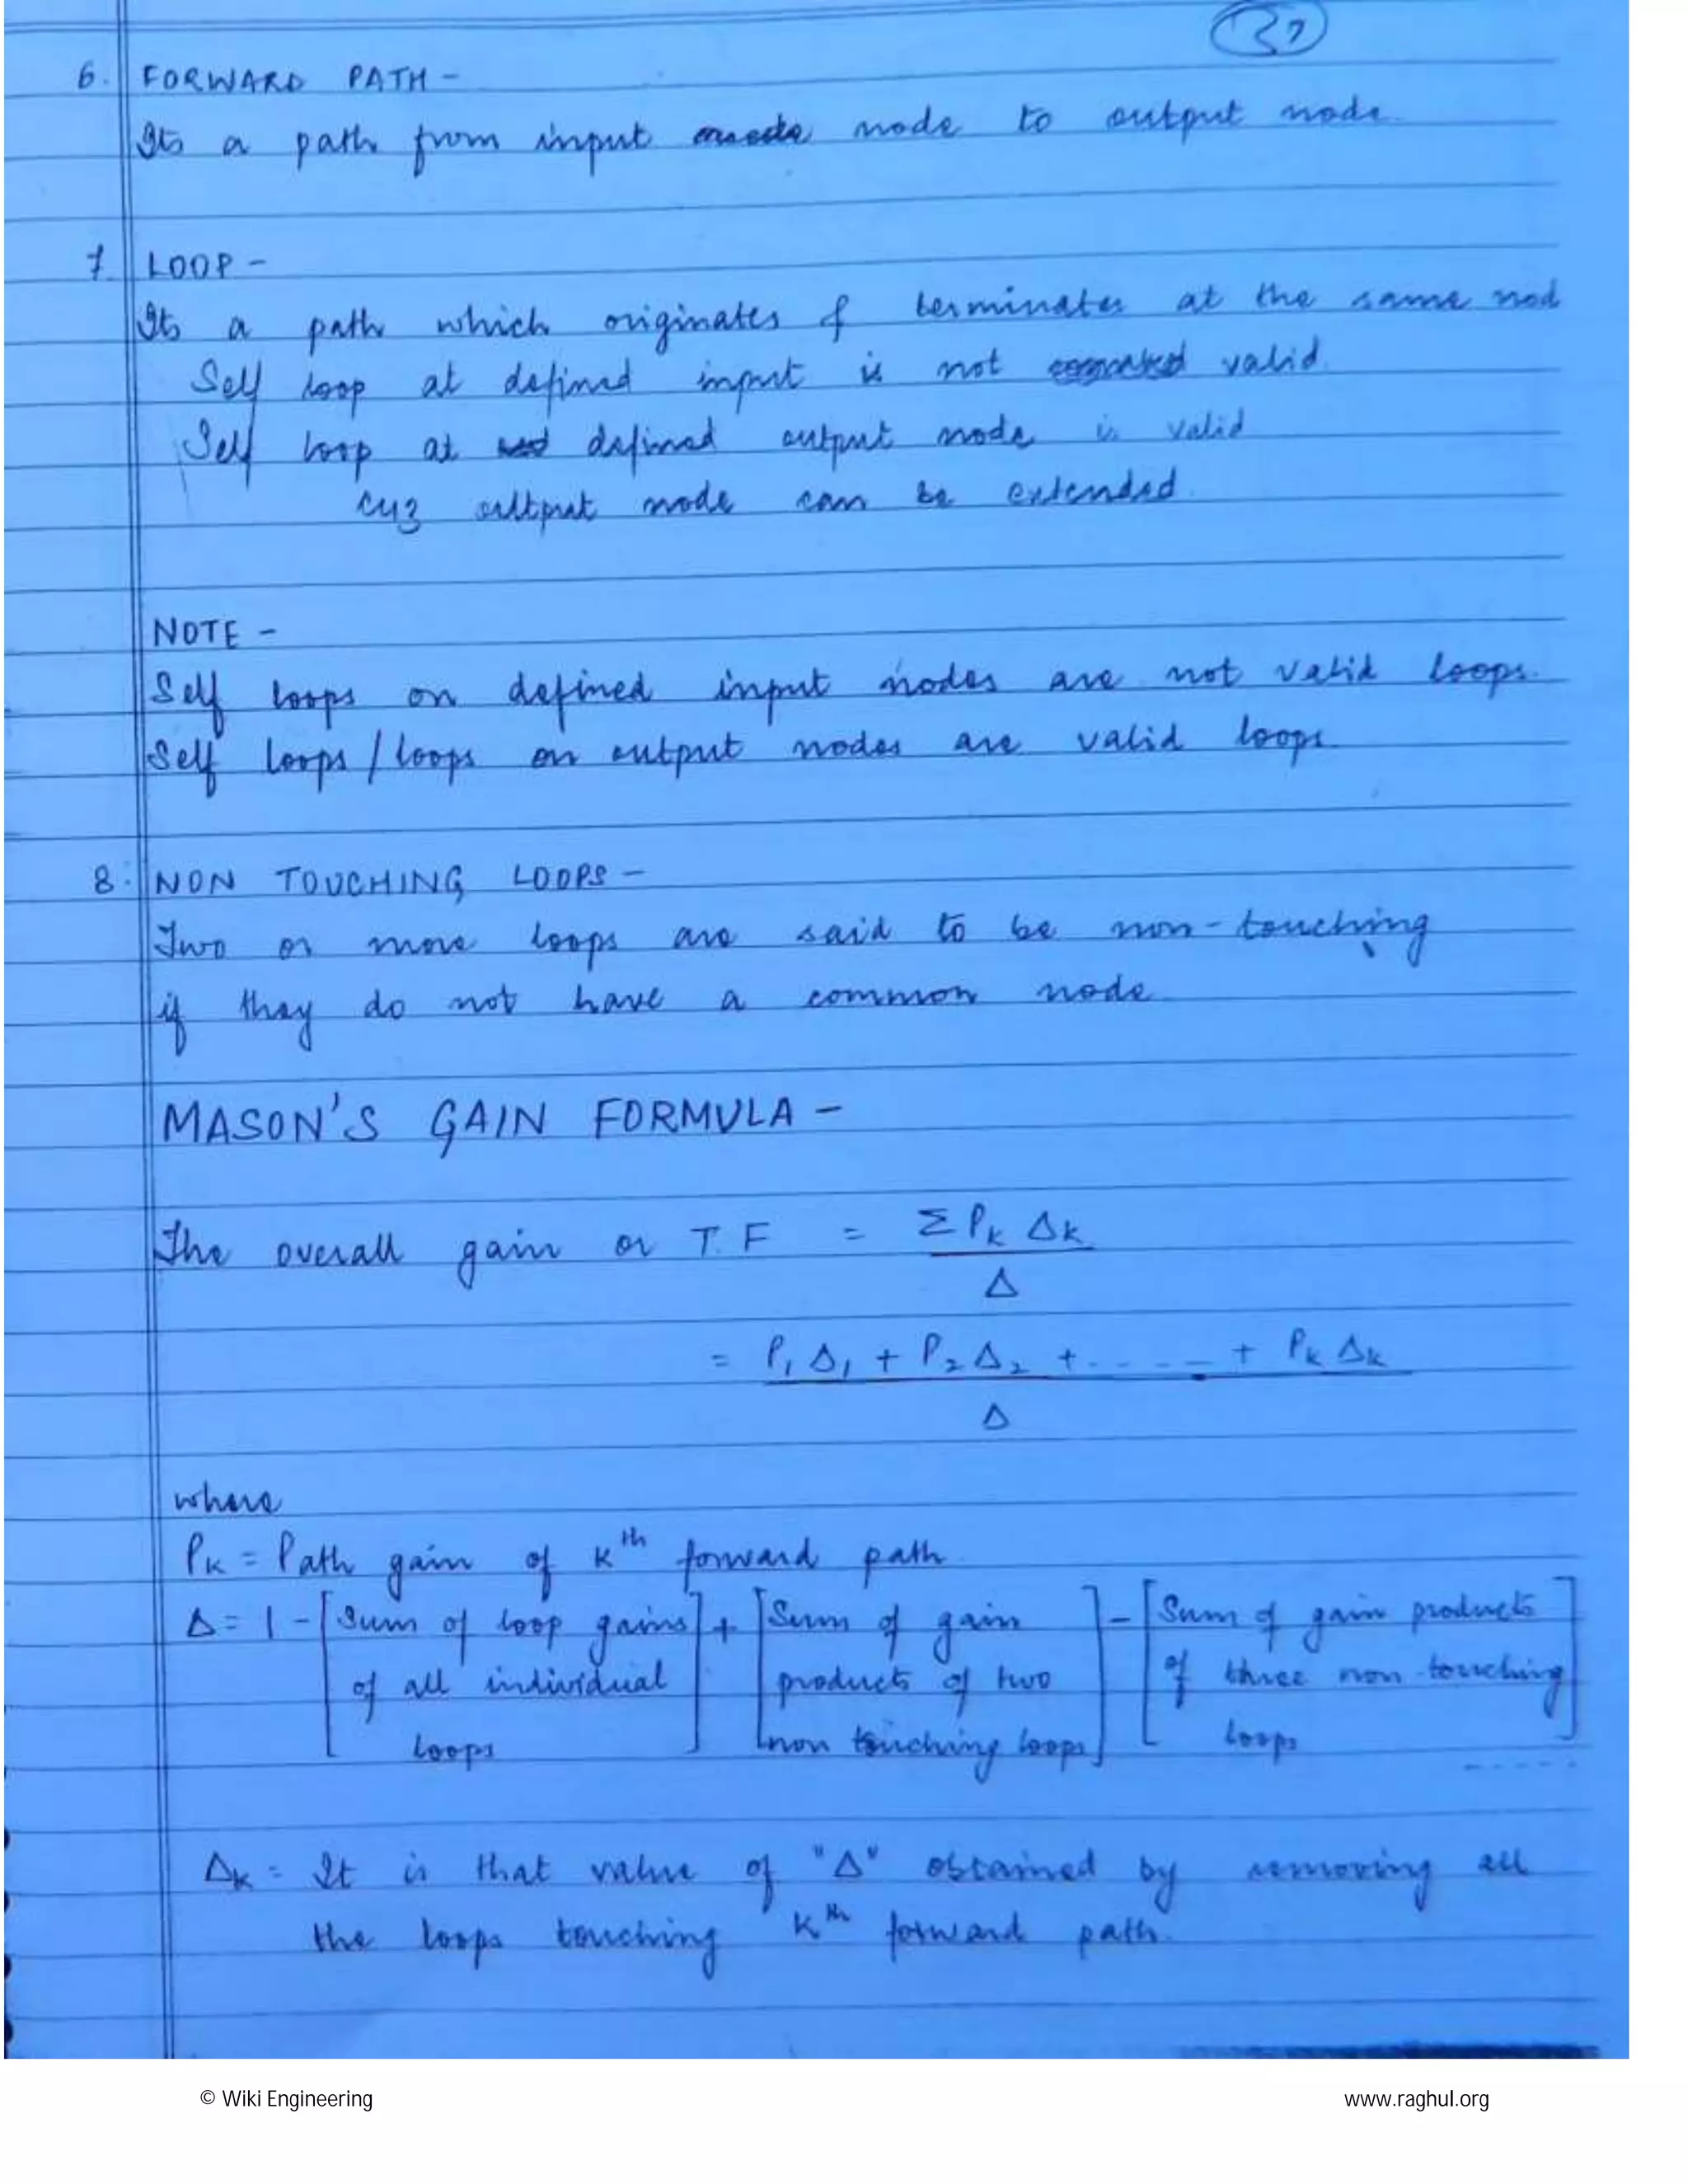 32
6. FORWARD PATH -
Its a path from input node to output node.
7. LOOP -
Its a path which originates & terminates at the same nod
Self loop at defined input is not valid.
Self loop at defined output node is valid
cuz output node can be extended.
NOTE -
Self loops on defined input nodes are not valid loops.
Self loops / loops on output nodes are valid loops.
8. NON TOUCHING LOOPS -
Two or more loops are said to be non-touching
if they do not have a common node
MASON'S GAIN FORMULA -
The overall gain or T.F = Σ Pk Δk
Δ
= P1 Δ1 + P2 Δ2 + ..... + Pk Δk
Δ
where
Pk = Path gain of kth forward path.
Δ = 1 - [Sum of loop gains] + [Sum of gain] - [Sum of gain products]
of all individual products of two of three non-touching
loops non touching loops loops .....
Δk = It is that value of "Δ" obtained by removing all
the loops touching kth forward path.
© Wiki Engineering www.raghul.org